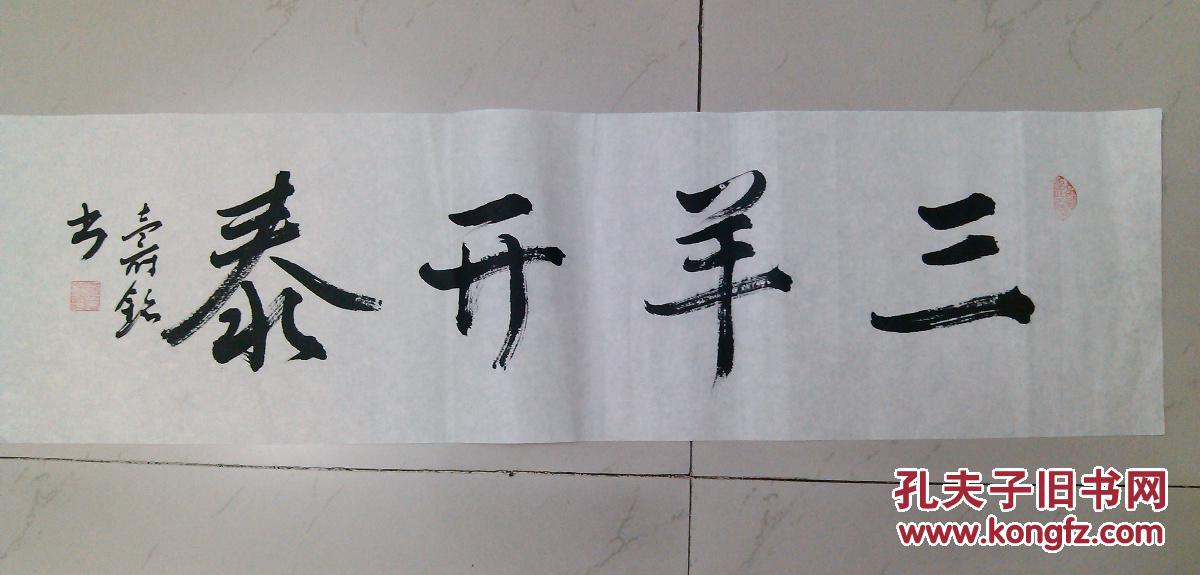 三羊开泰
壽銘
书
孔夫子旧书网
www.kongfz.com